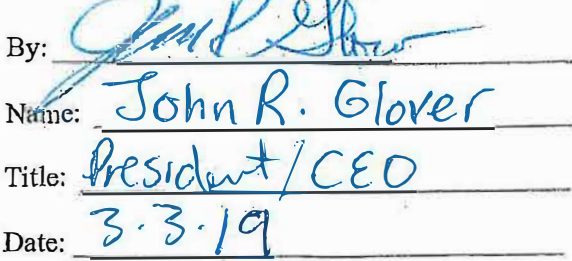 By:
Name: John R. Glover
Title: President/CEO
Date: 3.3.19